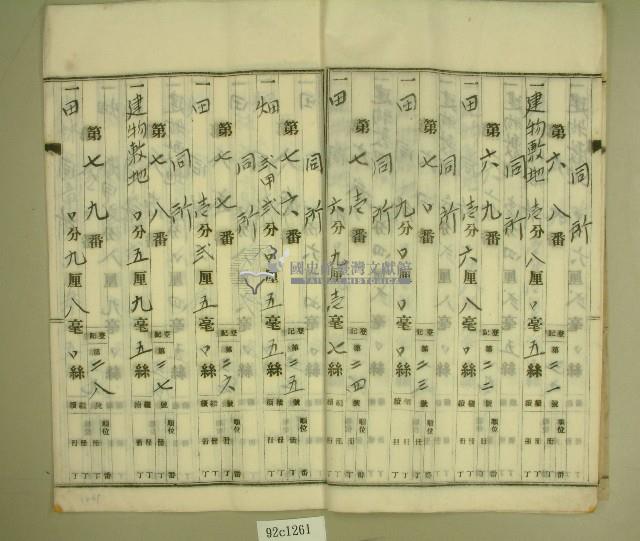 同所
第六八番
一建物敷地 壱分八厘〇毫〇絲
登記第二一號
同所
第六九番
一田 壱分六厘八毫〇絲
登記第二二號
同所
第七〇番
一田 九分〇厘〇毫〇絲
登記第二三號
同所
第七壱番
一田 六分九厘壱毫七絲
登記第二四號
同所
第七六番
一畑 弍甲弍分〇厘五毫五絲
登記第二五號
同所
第七七番
一田 壱分弍厘五毫〇絲
登記第二六號
同所
第七八番
一建物敷地 〇分五厘九毫五絲
登記第二七號
第七九番
一田 〇分九厘八毫〇絲
登記第二八號
國史館臺灣文獻館
TAIWAN HISTORICA
92c1261